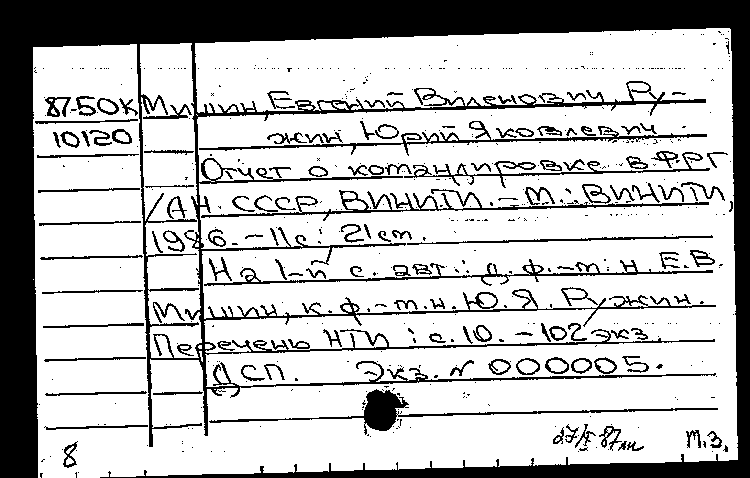 87-50К Мишин, Евгений Виленович, Ру-
10120 жин, Юрий Яковлевич
Отчет о командировке в ФРГ
/АН СССР, ВИНИТИ. - М.: ВИНИТИ,
1986. - 11с.: 21см.
На 1-й с. авт.: д. ф.-т. н. Е.В.
Мишин, к.ф.-т.н. Ю.Я. Ружин.
Перечень НТИ : с. 10. - 102 экз.
ДСП. Экз. N 000005.
8 27/I 87 т.з.